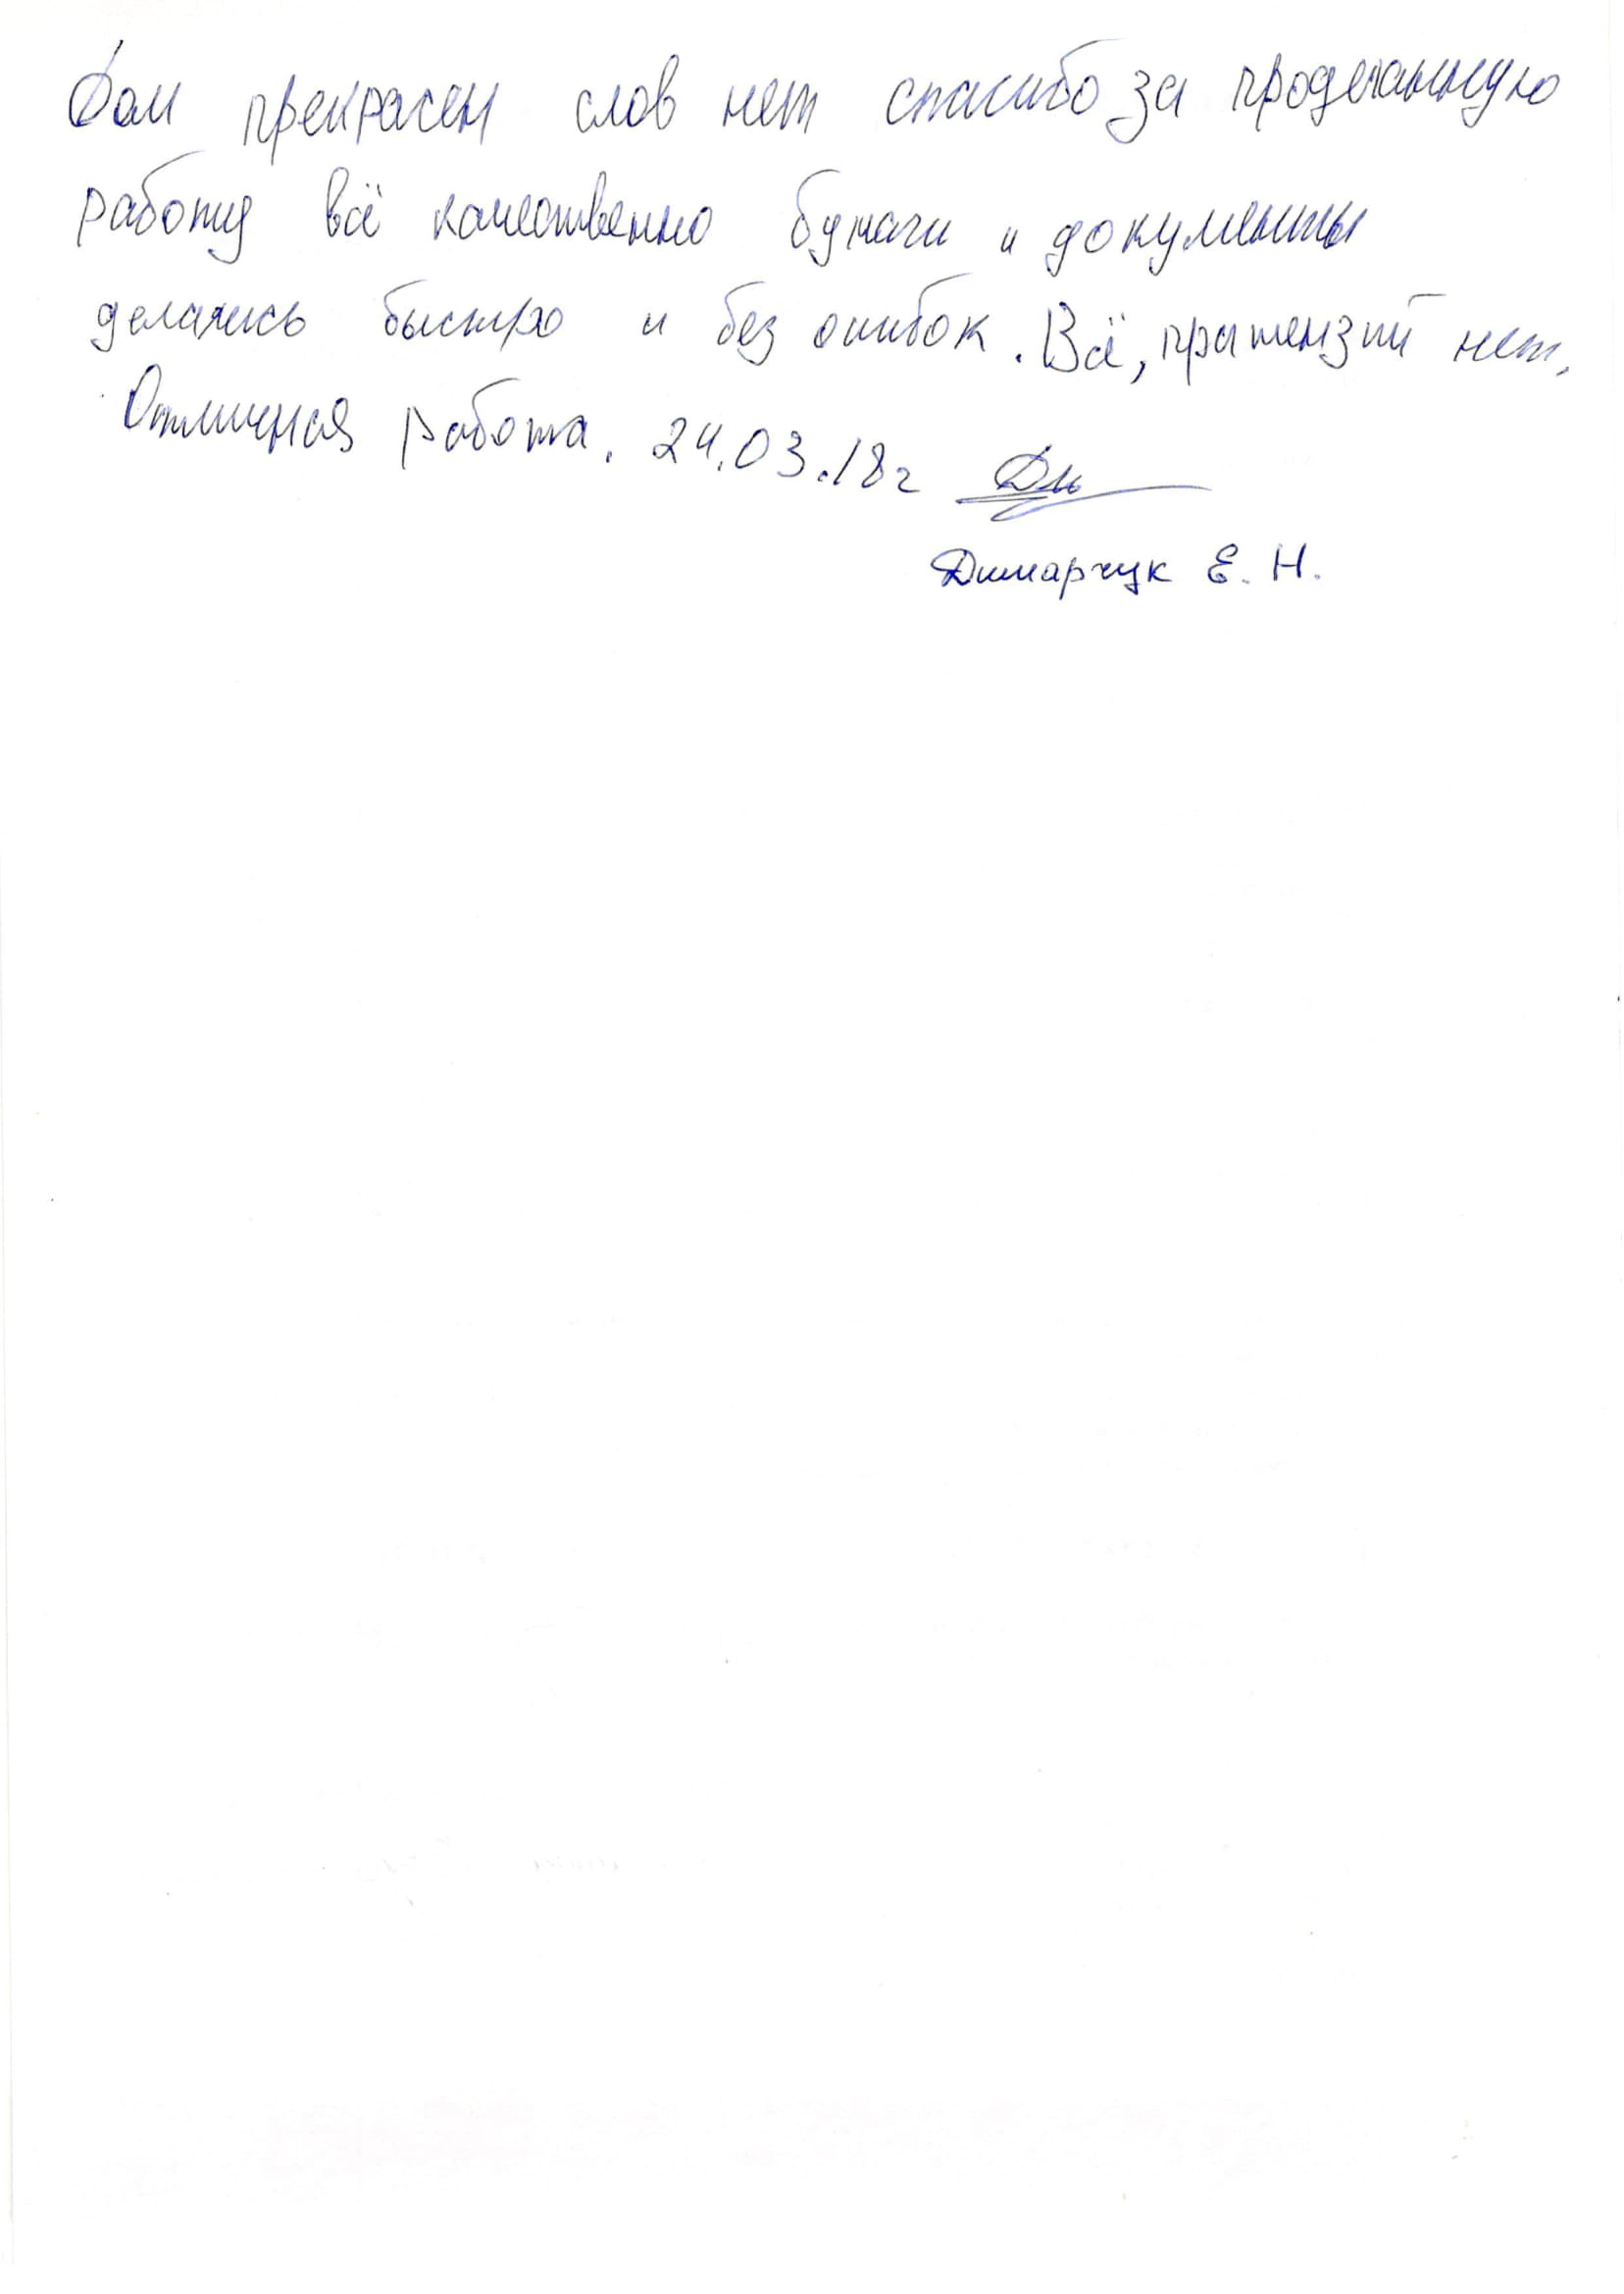 Дом прекрасен слов нет спасибо за проделанную
работу всё качественно бумаги и документы
делались быстро и без ошибок. Всё, пратензий нет.
Отличная работа. 24.03.18г
Димарчук Е. Н.